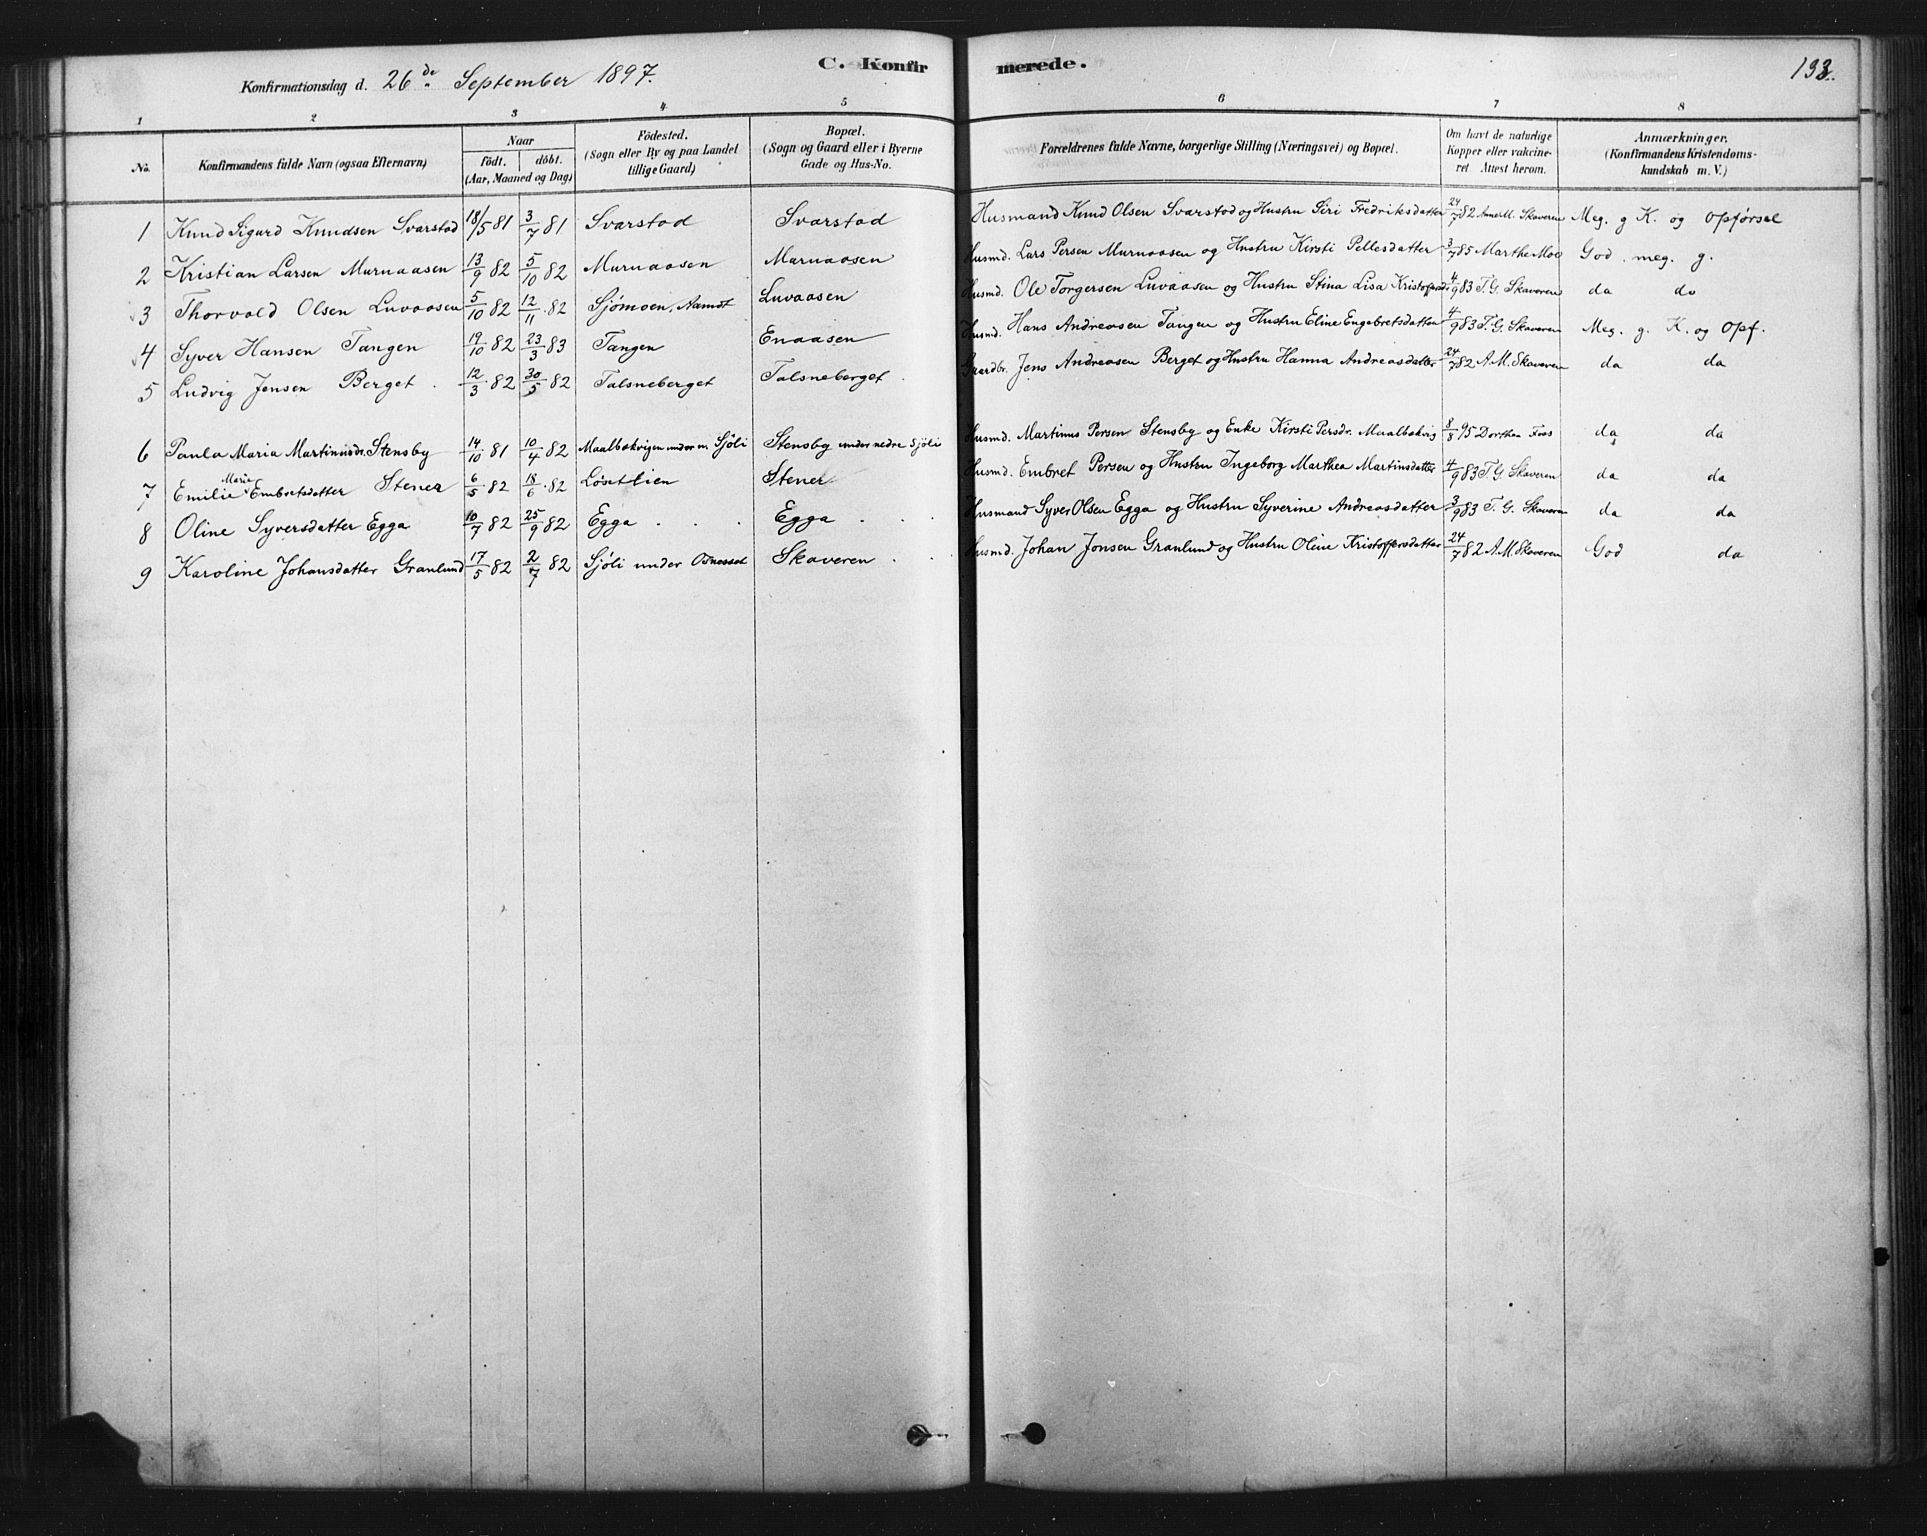 C. Konfirmerede.
193.
Konfirmationsdag d. 26de September 1897.
1 2 3 4 5 6 7 8
No.
Konfirmandens fulde Navn (ogsaa Efternavn)
Naar
Födt. döbt.
(Aar, Maaned og Dag)
Födested.
(Sogn eller By og paa Landet
tillige Gaard)
Bopæl.
(Sogn og Gaard eller i Byerne
Gade og Hus-No.
Forældrenes fulde Navne, borgerlige Stilling (Næringsvei) og Bopæl.
Om havt de naturlige
Kopper eller vakcine-
ret Attest herom.
Anmærkninger,
(Konfirmandens Kristendoms-
kundskab m. V.)
1 Knud Sigard Knudsen Svarstad 18/5 81 3/7 81 Svarstad Svarstad Husmand Knud Olsen Svarstad og Hustru Siri Fredriksdatter 24/7 82 Skaveren Meg. g K. og Opförsel
2 Kristian Larsen Murnaasen 13/9 82 5/10 82 Murnaasen Murnaasen Husmd. Lars Persen Murnaasen og Hustru Kirsti Pellesdatter 3/7 85 Marthe Moe God. meg. g.
3 Thorvald Olsen Luvaasen 5/10 82 12/11 82 Sjömoen, Aamot Luvaasen Husmd. Ole Torgersen Luvaasen og Hustru Stina Lisa 4/9 83 T. G. Skaveren da do
4 Syver Hansen Tangen 19/10 82 23/3 83 Tangen Enaasen Husmd. Hans Andreasen Tangen og Hustru Eline Engebretsdatter 4/9 83 T. G. Skaveren Meg. g. K. og Opf.
5 Ludvig Jensen Berget. 12/3 82 30/5 82 Talsneberget Talsneberget. Gaardbr. Jens Andreasen Berget og Hustru Hanna Andreasdatter 24/7 82 A. M. Skaveren da da
6 Paula Maria Martinusdr. Stensby 14/10 81 10/4 82 Maalbækvigen under n. Sjöli Stensby under nedre Sjöli Husmd. Martinus Persen Stensby og Enke Kirsti Persdr. Maalbækvig 8/8 95 Dorthea Foss da da
7 Emilie Marie Embretsdatter Stener 6/5 82 18/6 82 Lösetlien Stener Husmd. Embret Persen og Hustru Ingeborg Marthea Martinsdatter 4/9 83 T. G. Skaveren da da
8 Oline Syversdatter Egga 10/7 82 25/9 82 Egga Egga Husmand Syver Olsen Egga og Hustru Syverine Andreasdatter 3/9 83 T. G. Skaveren da da
9 Karoline Johansdatter Granlund 17/5 82 2/7 82 Sjöli under Skaveren Husmd. Johan Jonsen Granlund og Hustru Oline Kristoffersdatter 24/7 82 A. M. Skaveren God da